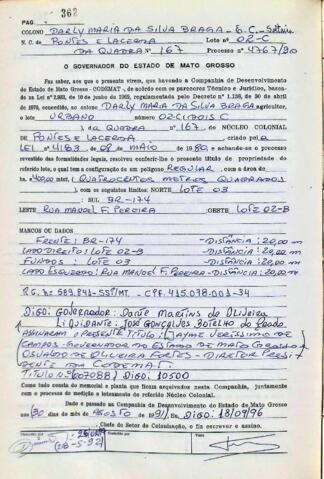 PAG 362
COLONO DARLY MARIA DA SILVA BRAGA - E.C. - Solteira
N. C. de PONTES E LACERDA Lote nº 02-C
DA QUADRA Nº 167 Processo nº 4767/90
O GOVERNADOR DO ESTADO DE MATO GROSSO
Faz saber, aos que a presente virem, que havendo a Companhia de Desenvolvimento
do Estado de Mato Grosso - CODEMAT -, de acôrdo com os pareceres Técnico e Jurídico, basea-
1970, concedido, ao colono DARLY MARIA DA SILVA BRAGA, agricultor, o
lote URBANO número 02-C (DOIS C
) da QUADRA nº 167, do NÚCLEO COLONIAL
DE PONTES E LACERDA criado pela
LEI nº 4183, de 08 de MAIO de 1980, e achando-se o processo
revestido das formalidades legais, resolveu conferir-lhe o presente título de propriedade do
referido lote, o qual tem a configuração de um polígono REGULAR, com a área de
400,00 m² (QUATROCENTOS METROS QUADRADOS
), com os seguintes limites: NORTE LOTE 03
SUL BR-174
LESTE RUA MANOEL F. PEREIRA OESTE LOTE 02-B
MARCOS OU DADOS
FRENTE: BR-174 - DISTÂNCIA: 20,00 m
LADO DIREITO: LOTE 02-B - DISTÂNCIA: 20,00 m
FUNDOS: LOTE 03 - DISTÂNCIA: 20,00 m
LADO ESQUERDO: RUA MANOEL F. PEREIRA - DISTÂNCIA: 20,00 m
R.G. Nº 589.841-SST/MT. - CPF. 415.078.001-34
DIGO: GOVERNADOR: Dante Martins de Oliveira
LIQUIDANTE: JOSÉ GONÇALVES BOTELHO do Prado.
ASSINARAM O PRESENTE TÍTULO: (JAYME VERÍSSIMO DE
CAMPOS - GOVERNADOR DO ESTADO DE MATO GROSSO
OSVALDO DE OLIVEIRA FORTES - DIRETOR PRESI-
DENTE DA CODEMAT.
TÍTULO Nº (007088) DIGO: 10500
Como tudo consta do memorial e planta que ficam arquivados nesta Companhia, juntamente
com o processo de medição e loteamento do referido Núcleo Colonial.
Dado e passado na Companhia de Desenvolvimento do Estado de Mato Grosso
aos (30 dias do mês de AGOSTO de 1991) Eu, DIGO: 18/09/96
Chefe do Setor de Colonização, o fiz escrever e assino.